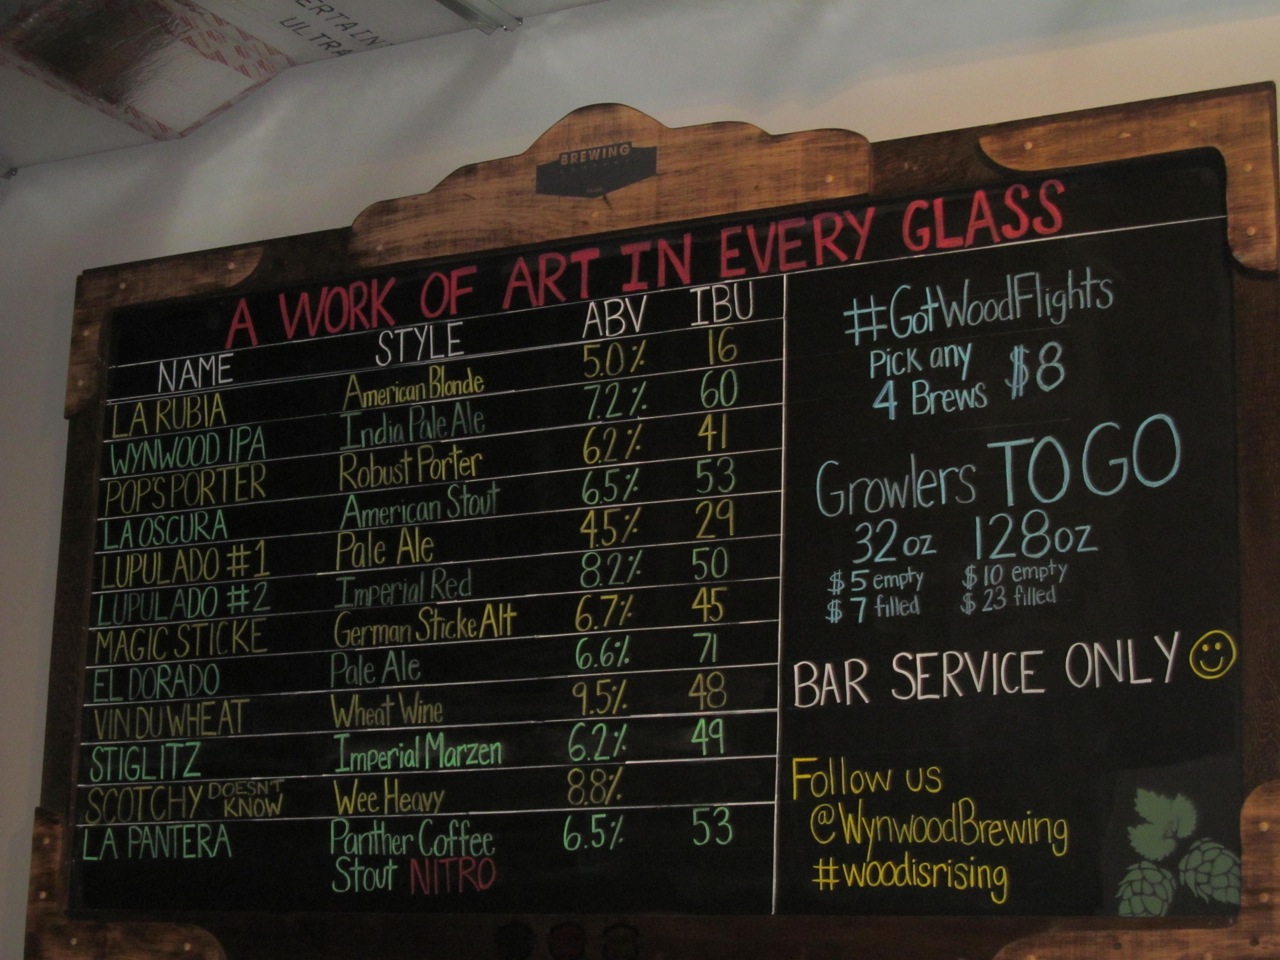 ERTAIN
ULTRA
BREWING
A WORK OF ART IN EVERY GLASS
NAME STYLE ABV IBU
LA RUBIA American Blonde 5.0% 16
WYNWOOD IPA India Pale Ale 7.2% 60
POP'S PORTER Robust Porter 6.2% 41
LA OSCURA American Stout 6.5% 53
LUPULADO #1 Pale Ale 4.5% 29
LUPULADO #2 Imperial Red 8.2% 50
MAGIC STICKE German Sticke Alt 6.7% 45
EL DORADO Pale Ale 6.6% 71
VIN DU WHEAT Wheat Wine 9.5% 48
STIGLITZ Imperial Marzen 6.2% 49
SCOTCHY DOESN'T KNOW Wee Heavy 8.8%
LA PANTERA Panther Coffee 6.5% 53
Stout NITRO
#GotWoodFlights
Pick any
4 Brews $8
Growlers TO GO
32oz 128oz
$5 empty $10 empty
$7 filled $23 filled
BAR SERVICE ONLY
Follow us
@WynwoodBrewing
#woodisrising